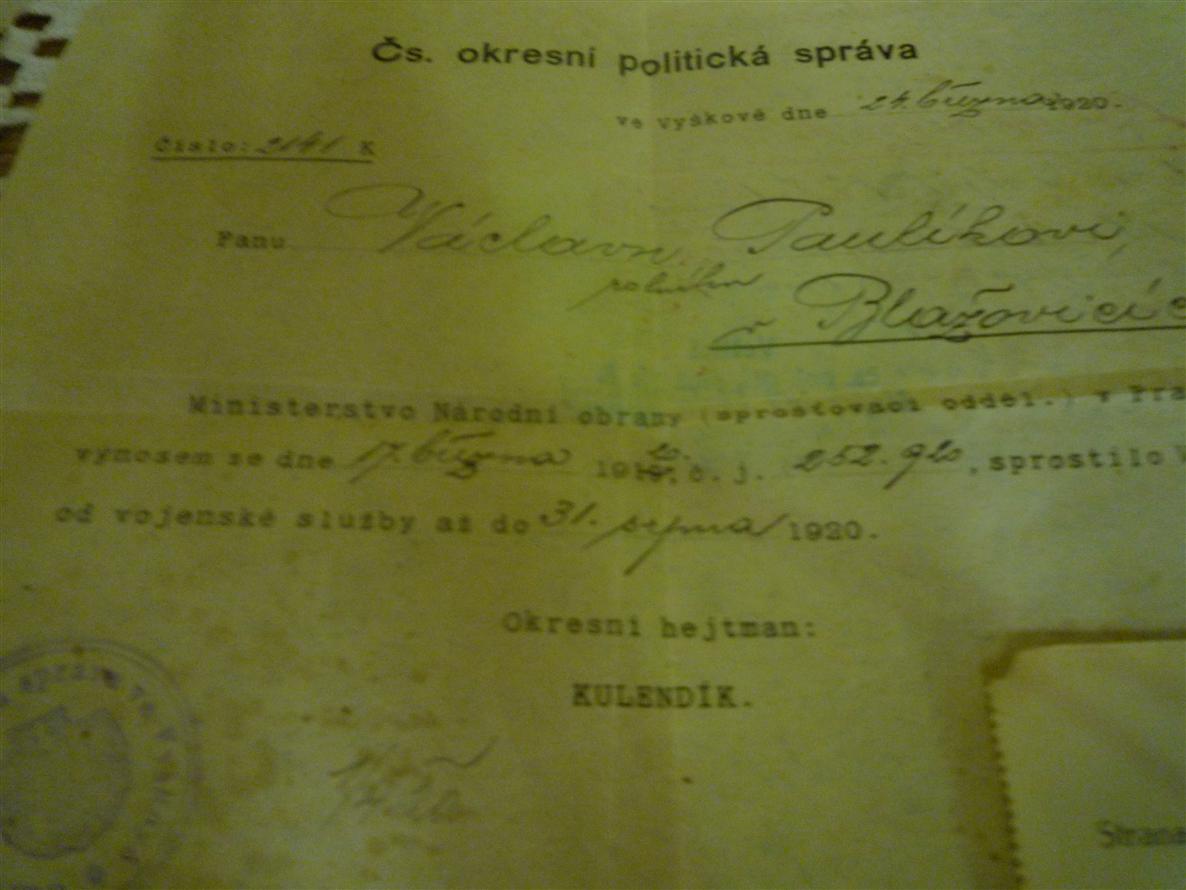 Čs. okresní politická správa
ve Vyškově dne 24. března 1920.
Číslo: 2141 K
Panu Václavu Paulíkovi,
rolníku
v Blažovicích
Ministerstvo Národní obrany (sprošťovací odděl.) v Pra
výnosem ze dne 17. března 1919, 20. č. j. 252.920, sprostilo V
od vojenské služby až do 31. srpna 1920.
Okresní hejtman:
KULENDÍK.
správa ve Vyškově
Strana